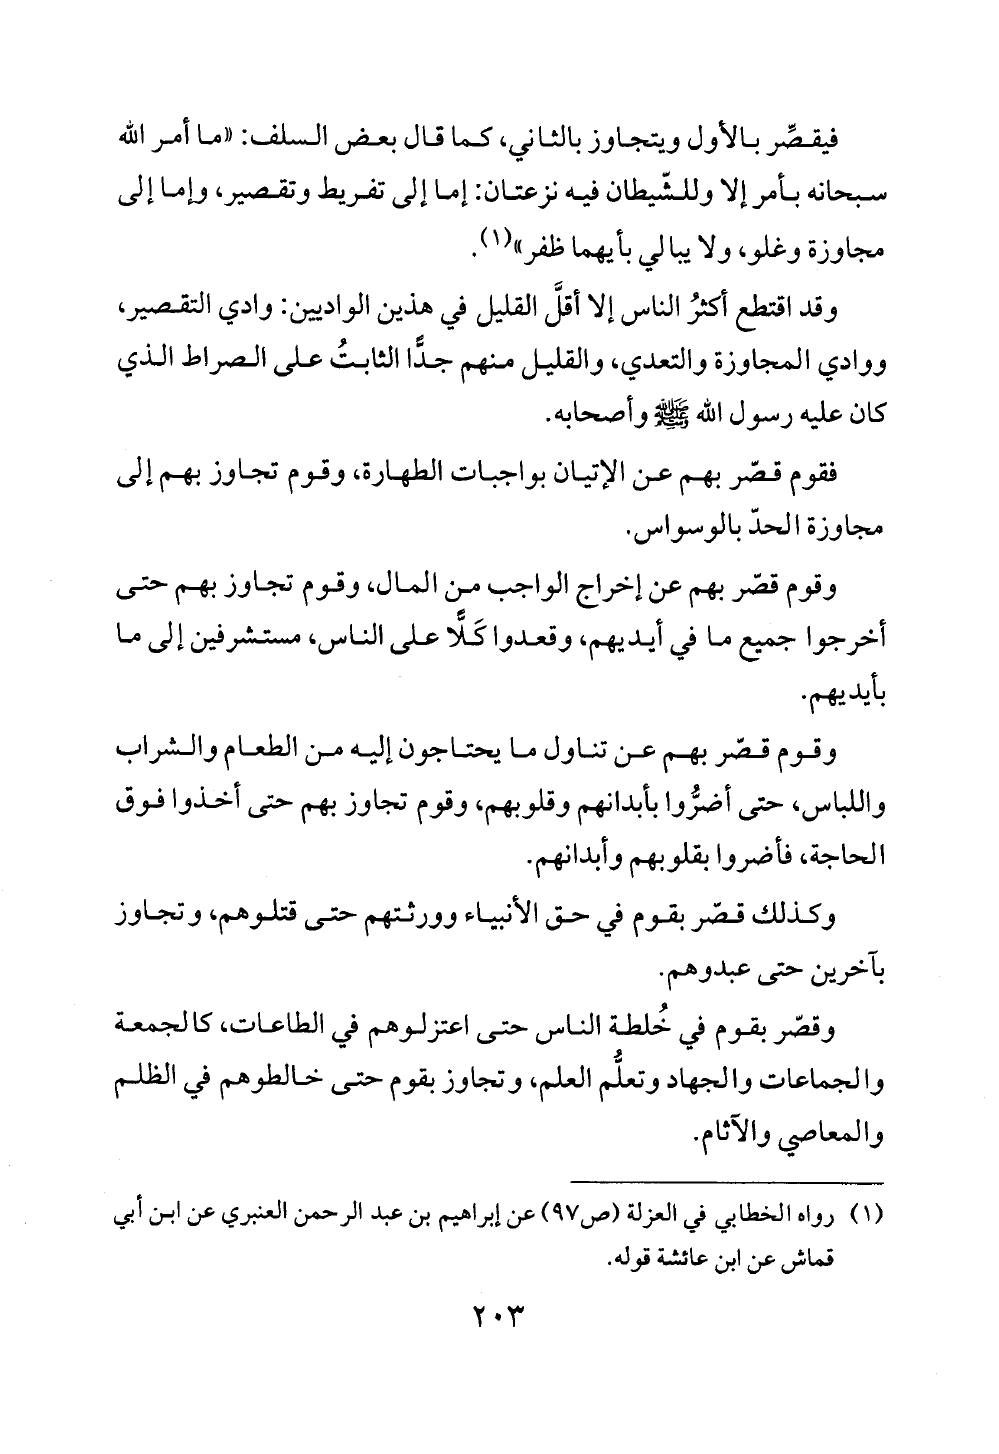 فيقصِّر بالأول ويتجاوز بالثاني، كما قال بعض السلف: «ما أمر الله
سبحانه بأمر إلا وللشّيطان فيه نزعتان: إما إلى تفريط وتقصير، وإما إلى
مجاوزة وغلو، ولا يبالي بأيهما ظفر»(١).
وقد اقتطع أكثرُ الناس إلا أقلَّ القليل في هذين الواديين: وادي التقصير،
ووادي المجاوزة والتعدي، والقليل منهم جدًّا الثابتُ على الصراط الذي
كان عليه رسول الله ﷺ وأصحابه.
فقوم قصّر بهم عن الإتيان بواجبات الطهارة، وقوم تجاوز بهم إلى
مجاوزة الحدّ بالوسواس.
وقوم قصّر بهم عن إخراج الواجب من المال، وقوم تجاوز بهم حتى
أخرجوا جميع ما في أيديهم، وقعدوا كَلًّا على الناس، مستشرفين إلى ما
بأيديهم.
وقوم قصّر بهم عن تناول ما يحتاجون إليه من الطعام والشراب
واللباس، حتى أضرُّوا بأبدانهم وقلوبهم، وقوم تجاوز بهم حتى أخذوا فوق
الحاجة، فأضروا بقلوبهم وأبدانهم.
وكذلك قصّر بقوم في حق الأنبياء وورثتهم حتى قتلوهم، وتجاوز
بآخرين حتى عبدوهم.
وقصّر بقوم في خُلطة الناس حتى اعتزلوهم في الطاعات، كالجمعة
والجماعات والجهاد وتعلُّم العلم، وتجاوز بقوم حتى خالطوهم في الظلم
والمعاصي والآثام.
(١) رواه الخطابي في العزلة (ص٩٧) عن إبراهيم بن عبد الرحمن العنبري عن ابن أبي
قماش عن ابن عائشة قوله.
٢٠٣